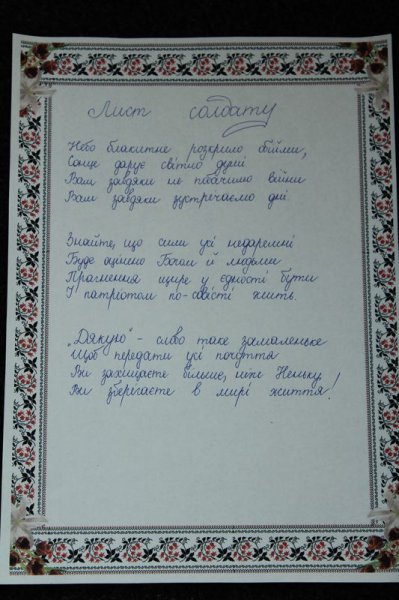 Лист солдату
Небо блакитне розкрило обійми,
Сонце дарує світло душі
Вам завдяки не побачимо війни
Вам завдяки зустрічаємо дні.
Знайте, що сили усі недаремні
Буде оцінено Богом й людьми
Прагнення щире у єдності бути
І патріотом по-совісті жить.
„Дякую" - слово таке замаленьке
Щоб передати усі почуття
Ви захищаєте більше, ніж Неньку
Ви зберігаєте в мирі життя!